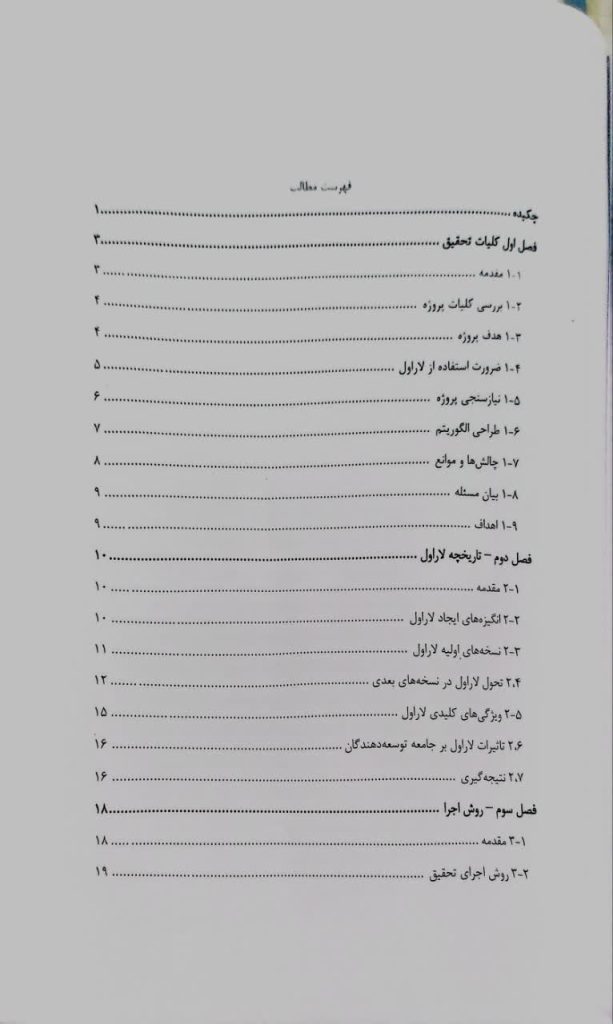 فهرست مطالب
چکیده ........ ۱
فصل اول کلیات تحقیق ........ ۳
۱-۱ مقدمه ........ ۳
۱-۲ بررسی کلیات پروژه ........ ۴
۱-۳ هدف پروژه ........ ۴
۱-۴ ضرورت استفاده از لاراول ........ ۵
۱-۵ نیازسنجی پروژه ........ ۶
۱-۶ طراحی الگوریتم ........ ۷
۱-۷ چالش‌ها و موانع ........ ۸
۱-۸ بیان مسئله ........ ۹
۱-۹ اهداف ........ ۹
فصل دوم – تاریخچه لاراول ........ ۱۰
۲-۱ مقدمه ........ ۱۰
۲-۲ انگیزه‌های ایجاد لاراول ........ ۱۰
۲-۳ نسخه‌های اولیه لاراول ........ ۱۱
۲،۴ تحول لاراول در نسخه‌های بعدی ........ ۱۲
۲-۵ ویژگی‌های کلیدی لاراول ........ ۱۵
۲،۶ تاثیرات لاراول بر جامعه توسعه‌دهندگان ........ ۱۶
۲،۷ نتیجه‌گیری ........ ۱۶
فصل سوم – روش اجرا ........ ۱۸
۳-۱ مقدمه ........ ۱۸
۳-۲ روش اجرای تحقیق ........ ۱۹